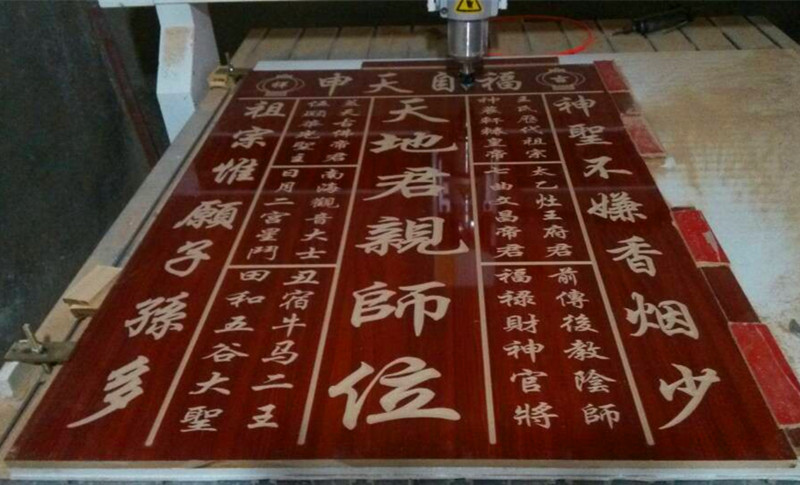 吉
福自天申
祥
神聖不嫌香烟少
王氏歷代祖宗
神農軒轅皇帝
太乙灶王府君
七曲文昌帝君
前傳後教陰師
福祿財神官將
天地君親師位
蓋天古佛帝君
伍顯華光聖主
南海觀音大士
日月二宮星鬥
丑宿牛马二王
田和五谷大聖
祖宗惟願子孫多